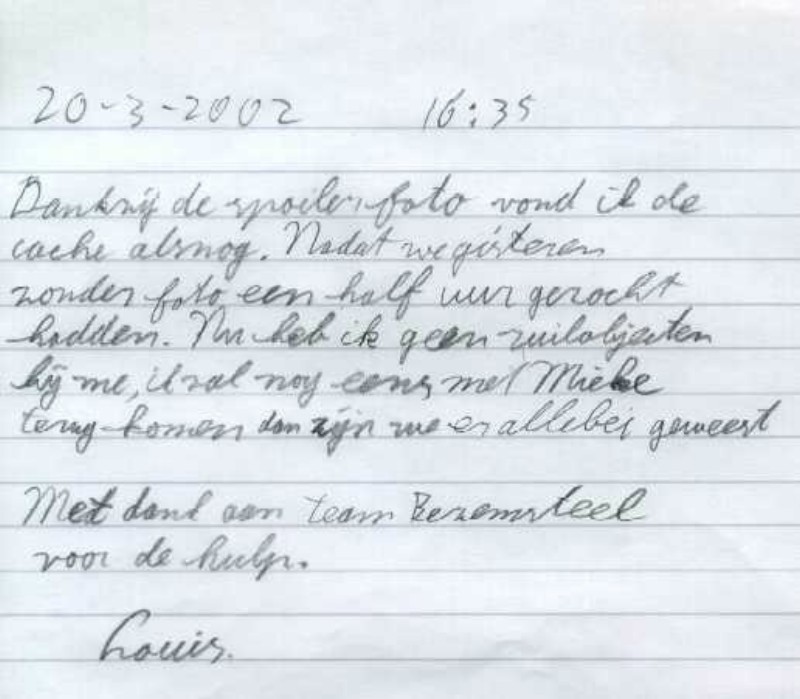 20-3-2002 16:35
Dankzij de spoiler foto vond ik de
cache alsnog. Nadat we gisteren
zonder foto een half uur gezocht
hadden. Nu heb ik geen ruilobjecten
bij me, ik zal nog eens met Mieke
terug komen dan zijn we er allebei geweest
Met dank aan team Bezemsteel
voor de hulp.
Louis.